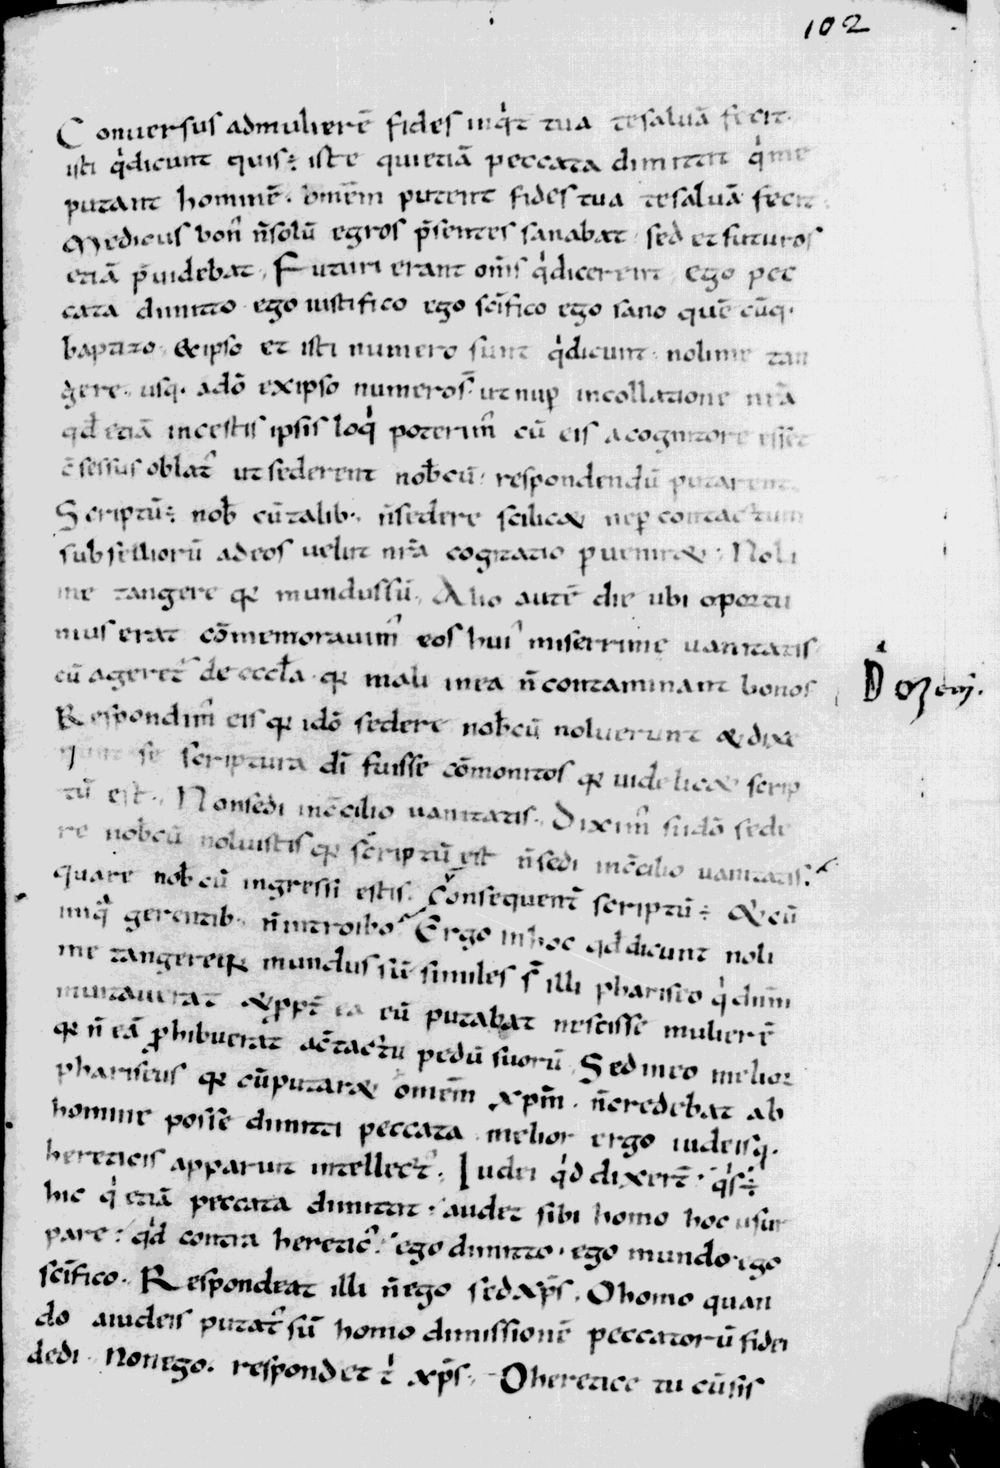 102
Conuersus admulierē fides inq̇t tua tesaluā fecit.
isti q̇dicunt quis÷ iste quietiā peccata dimittit q̇me
putant hominē. Omēm putent fides tua tesaluā fecit.
Medicus bon᾽ n̄solū egros p̄sentes sanabat sed et futuros
etiā p̄uidebat. Futuri erant om̄s q̇dicerent ego pec
cata dimitto ego iustifico ego sc̄ifico ego sano quēcūq·
baptizo. &ipso et isti numero sunt q̇dicunt. nolime tan
gere. usq· adō exipso numeros᷑ ut nup̄ incollatione nr̄a
qđ etiā incestis ipsis loq̇ poterim᾽ cū eis acognitore esset
c̄sessus oblat᾽ ut sederent nob̄cū. respondendū putarent.
Scriptū÷ nob̄ cūtalib·. n̄sedere scilic& nep̄ contactum
subselliorū adeos uelut nr̄a cognatio p̄uenir&. Noli
me tangere qr mundussū. Alio autē die ubi oportu
nius erat cōmemorauim᾽ eos hui᾽ miserrime uanitatis
cū ageret᾽ de eccl̄a. qr mali inea n̄contaminant bonos
Respondim᾽ eis qr idō sedere nob̄cū noluerunt &dixe
runt se scriptura dī fuisse cōmonitos qr uidelic& scrip
tū est. Nonsedi inc̄cilio uanitatis. Dixim᾽ siidō sede
re nob̄cū noluistis qr scriptū est n̄sedi inc̄cilio uanitatis.
quare nob̄cū ingressi estis. Consequent᾽ scriptū÷ &cū
iniq̇ gerentib· n̄introibo. Ergo inhoc qđdicunt noli
me tangereqr mundus sū similes s̄ illi phariseo q̇dn̄m
inuitauerat &ppt̄ ea eū putabat nescisse mulierē
qr n̄ eā p̄hibuerat ac̄tactu pedū suorū. Sed meo melior
phariseus qr cūputar& omēm xp̄m. n̄credebat ab
homine posse dimitti peccata. melior ergo iudeisq·
hereticis apparuit intellect᾽. Iudei q̇d dixert̄ q̇s÷
hic q̇ etiā peccata dimittit. audet sibi homo hoc usur
pare. q̇d contra heretic᾽ ego dimitto. ego mundo ego
sc̄ifico. Respondeat illi n̄ego sedxp̄s. Ohomo quan
do aiudeis putat᾽ sū homo dimissionē peccatorū fidei
dedi. Nonego. respondet t᾽ xp̄s. Oheretice tu cūsis